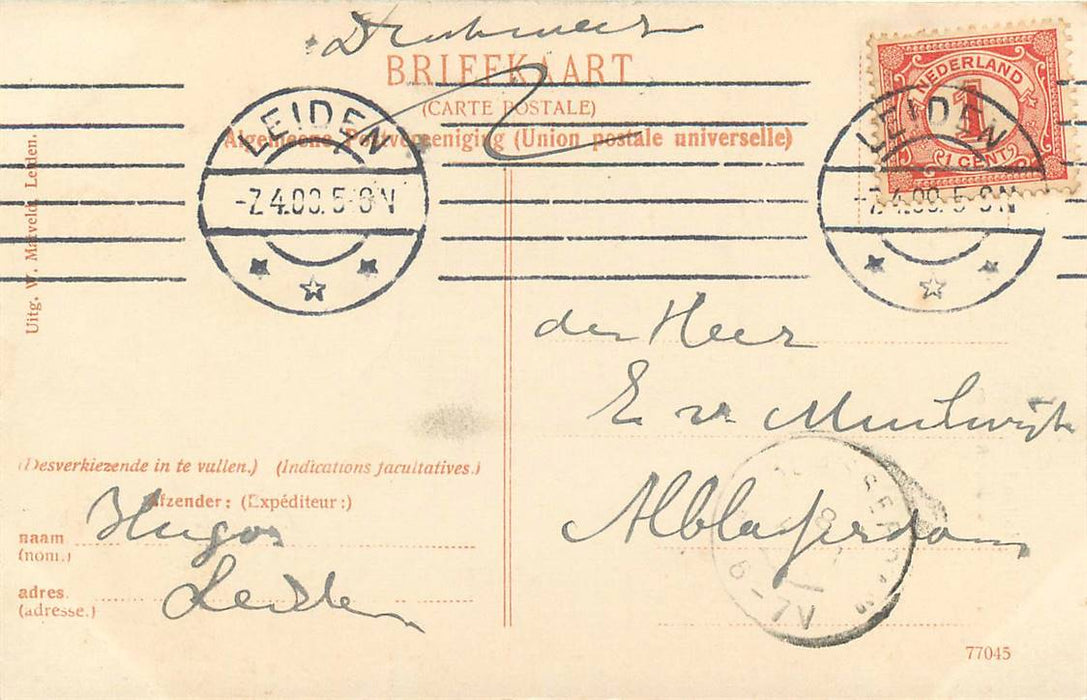 BRIEFKAART
(CARTE POSTALE)
Algemeene Postvereeniging (Union postale universelle)
NEDERLAND
1
1 CENT
LEIDEN
-7.4.09.5-6N
LEIDEN
-7.4.09.5-6N
Uitg. W. Matveld, Leiden.
den Heer
E v. Muilwijk
Alblasserdam
6-7V
(Desverkiezende in te vullen.) (Indications facultatives.)
Afzender: (Expéditeur:)
naam Hugos
(nom.)
adres. Leiden
(adresse.)
77045